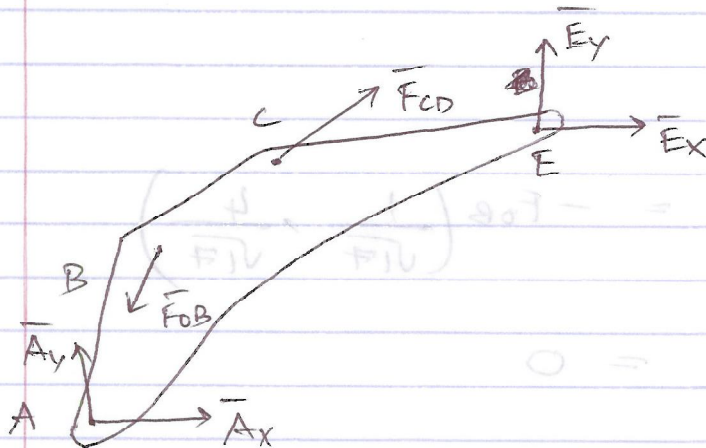 E̅y
F̅CD
C
E̅x
E
B
F̅OB
A̅y
A
A̅x